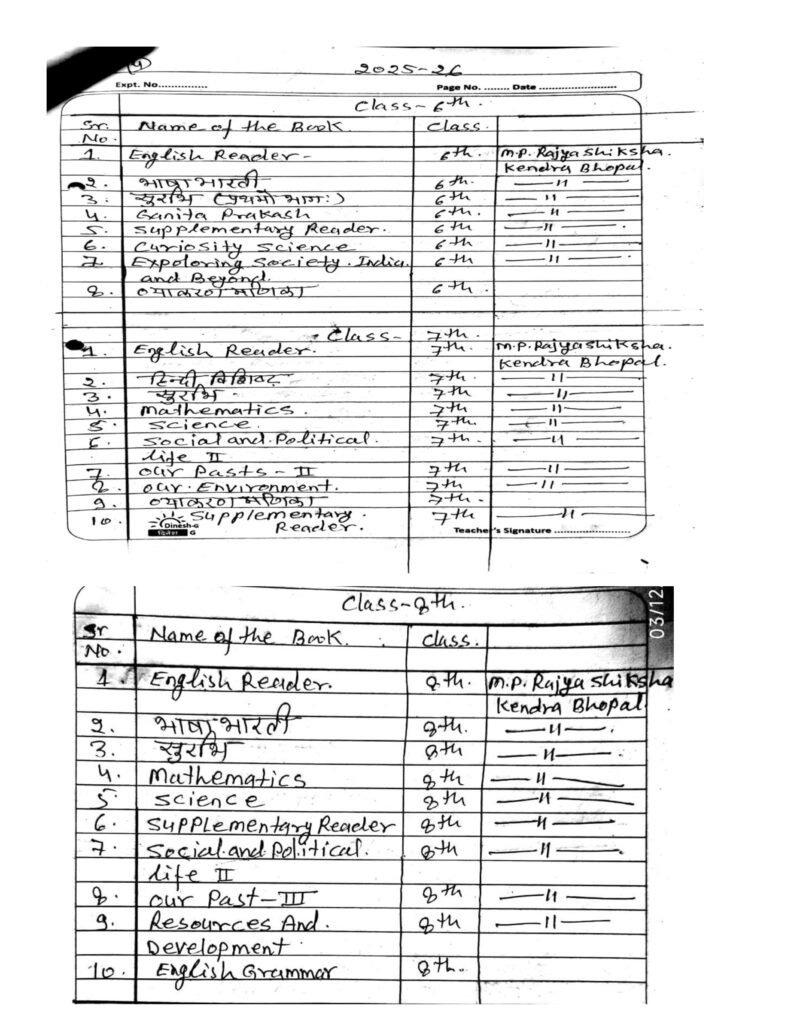 9
2025-26
Expt. No............... Page No. ........ Date ........................
Class- 6th.
Sr. No. Name of the Book. Class.
1. English Reader- 6th. M.P. Rajya Shiksha.
Kendra Bhopal.
2. भाषा भारती 6th. —"—
3. सुरभि (प्रथमो भागः) 6th —"—
4. Ganita Prakash 6th. —"—
5. Supplementary Reader. 6th —"—
6. Curiosity Science 6th —"—
7. Expoloring Society. India. 6th —"—
and Beyond.
8. व्याकरण मणिका 6th.
Class- 7th.
1. English Reader. 7th. M.P. Rajya Shiksha.
Kendra Bhopal.
2. हिन्दी विशिष्ट 7th. —"—
3. सुरभि. 7th —"—
4. Mathematics. 7th —"—
5. Science. 7th. —"—
6. Social and Political. 7th. —"—
life II
7. our Pasts-II 7th —"—
8. our Environment. 7th —"—
9. व्याकरण मणिका 7th.
10. Supplementary. 7th —"—
Reader.
Dinesh-G
दिनेश G
Teacher's Signature ........................
03/12
Class-8th.
Sr No. Name of the Book. Class.
1. English Reader. 8th. M.P. Rajya Shiksha
Kendra Bhopal
2. भाषा भारती 8th. —"—.
3. सुरभि 8th —"—
4. Mathematics 8th —"—
5. Science 8th —"—
6. Supplementary Reader 8th —"—
7. Social and Political. 8th —"—.
life II
8. our Past-III 8th —"—
9. Resources And. 8th —"—
Development.
10. English Grammar 8th.